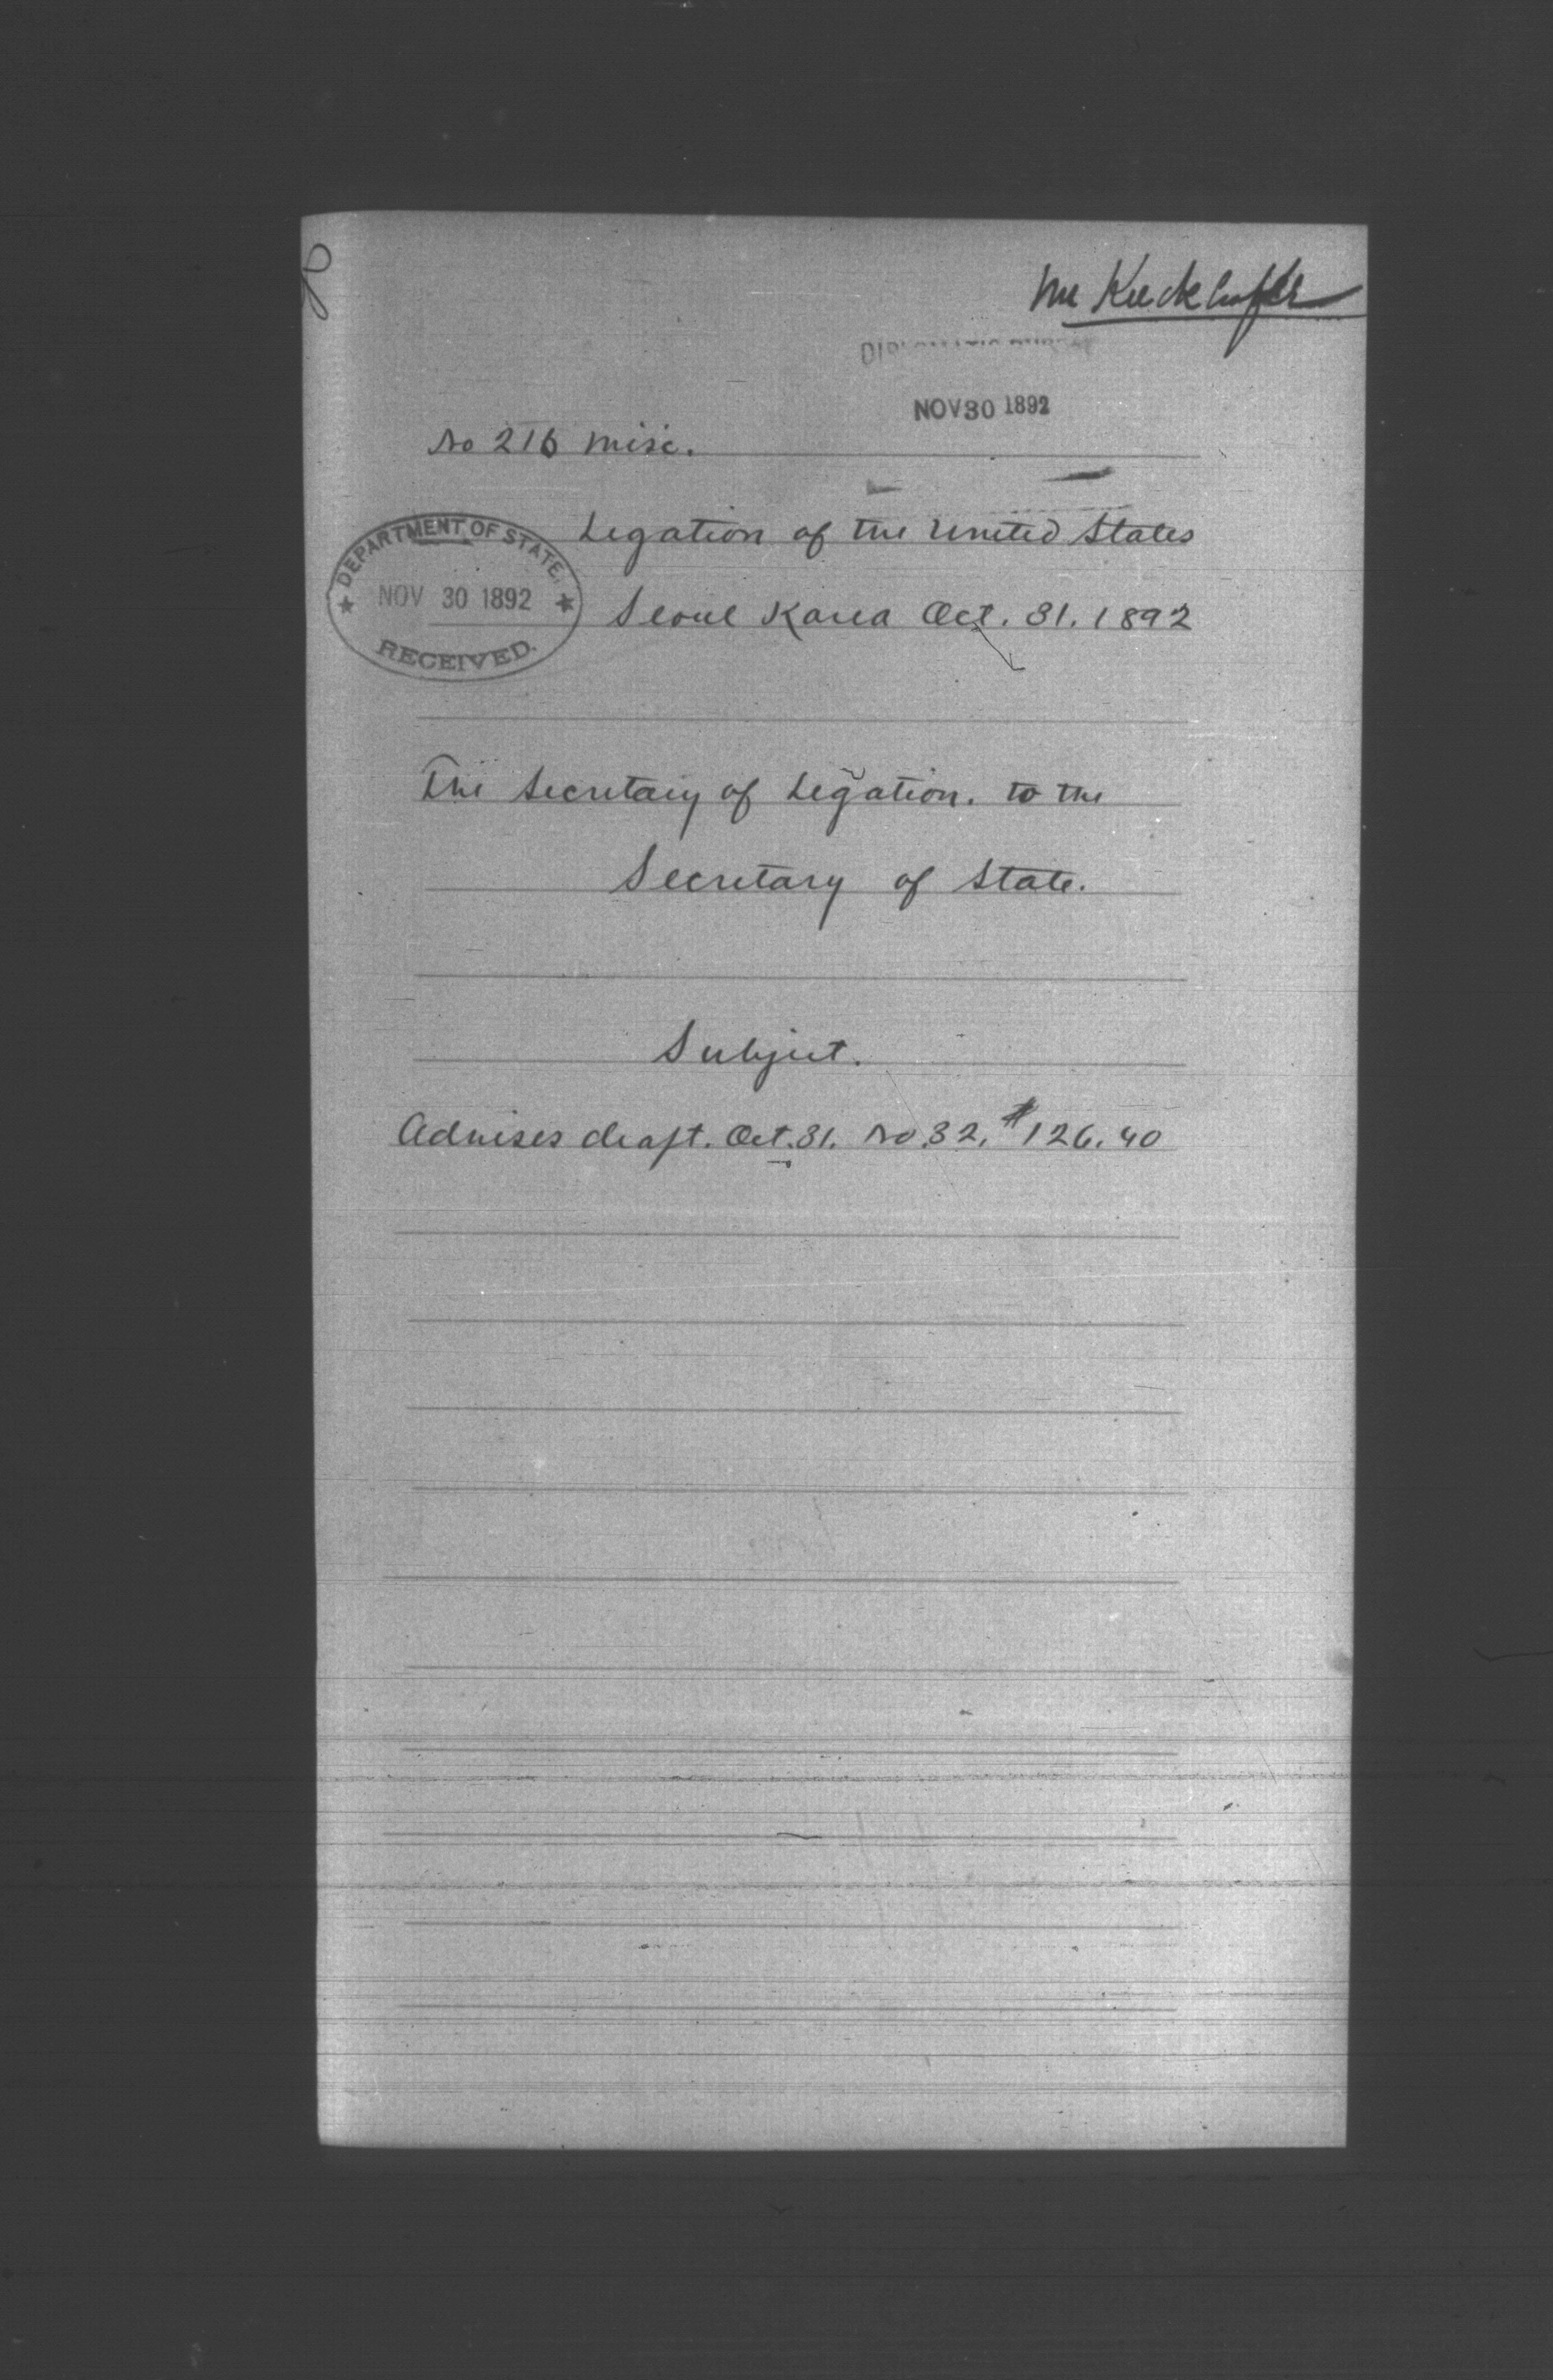 Mr Kieckhoefer
NOV 30 1892
No 216 misc.
DEPARTMENT OF STATE,
NOV 30 1892
RECEIVED.
Legation of the United States
Seoul Korea Oct. 31. 1892
The Secretary of Legation. to the
Secretary of State.
Subject.
Advises draft. Oct. 31. No 32. $126.40